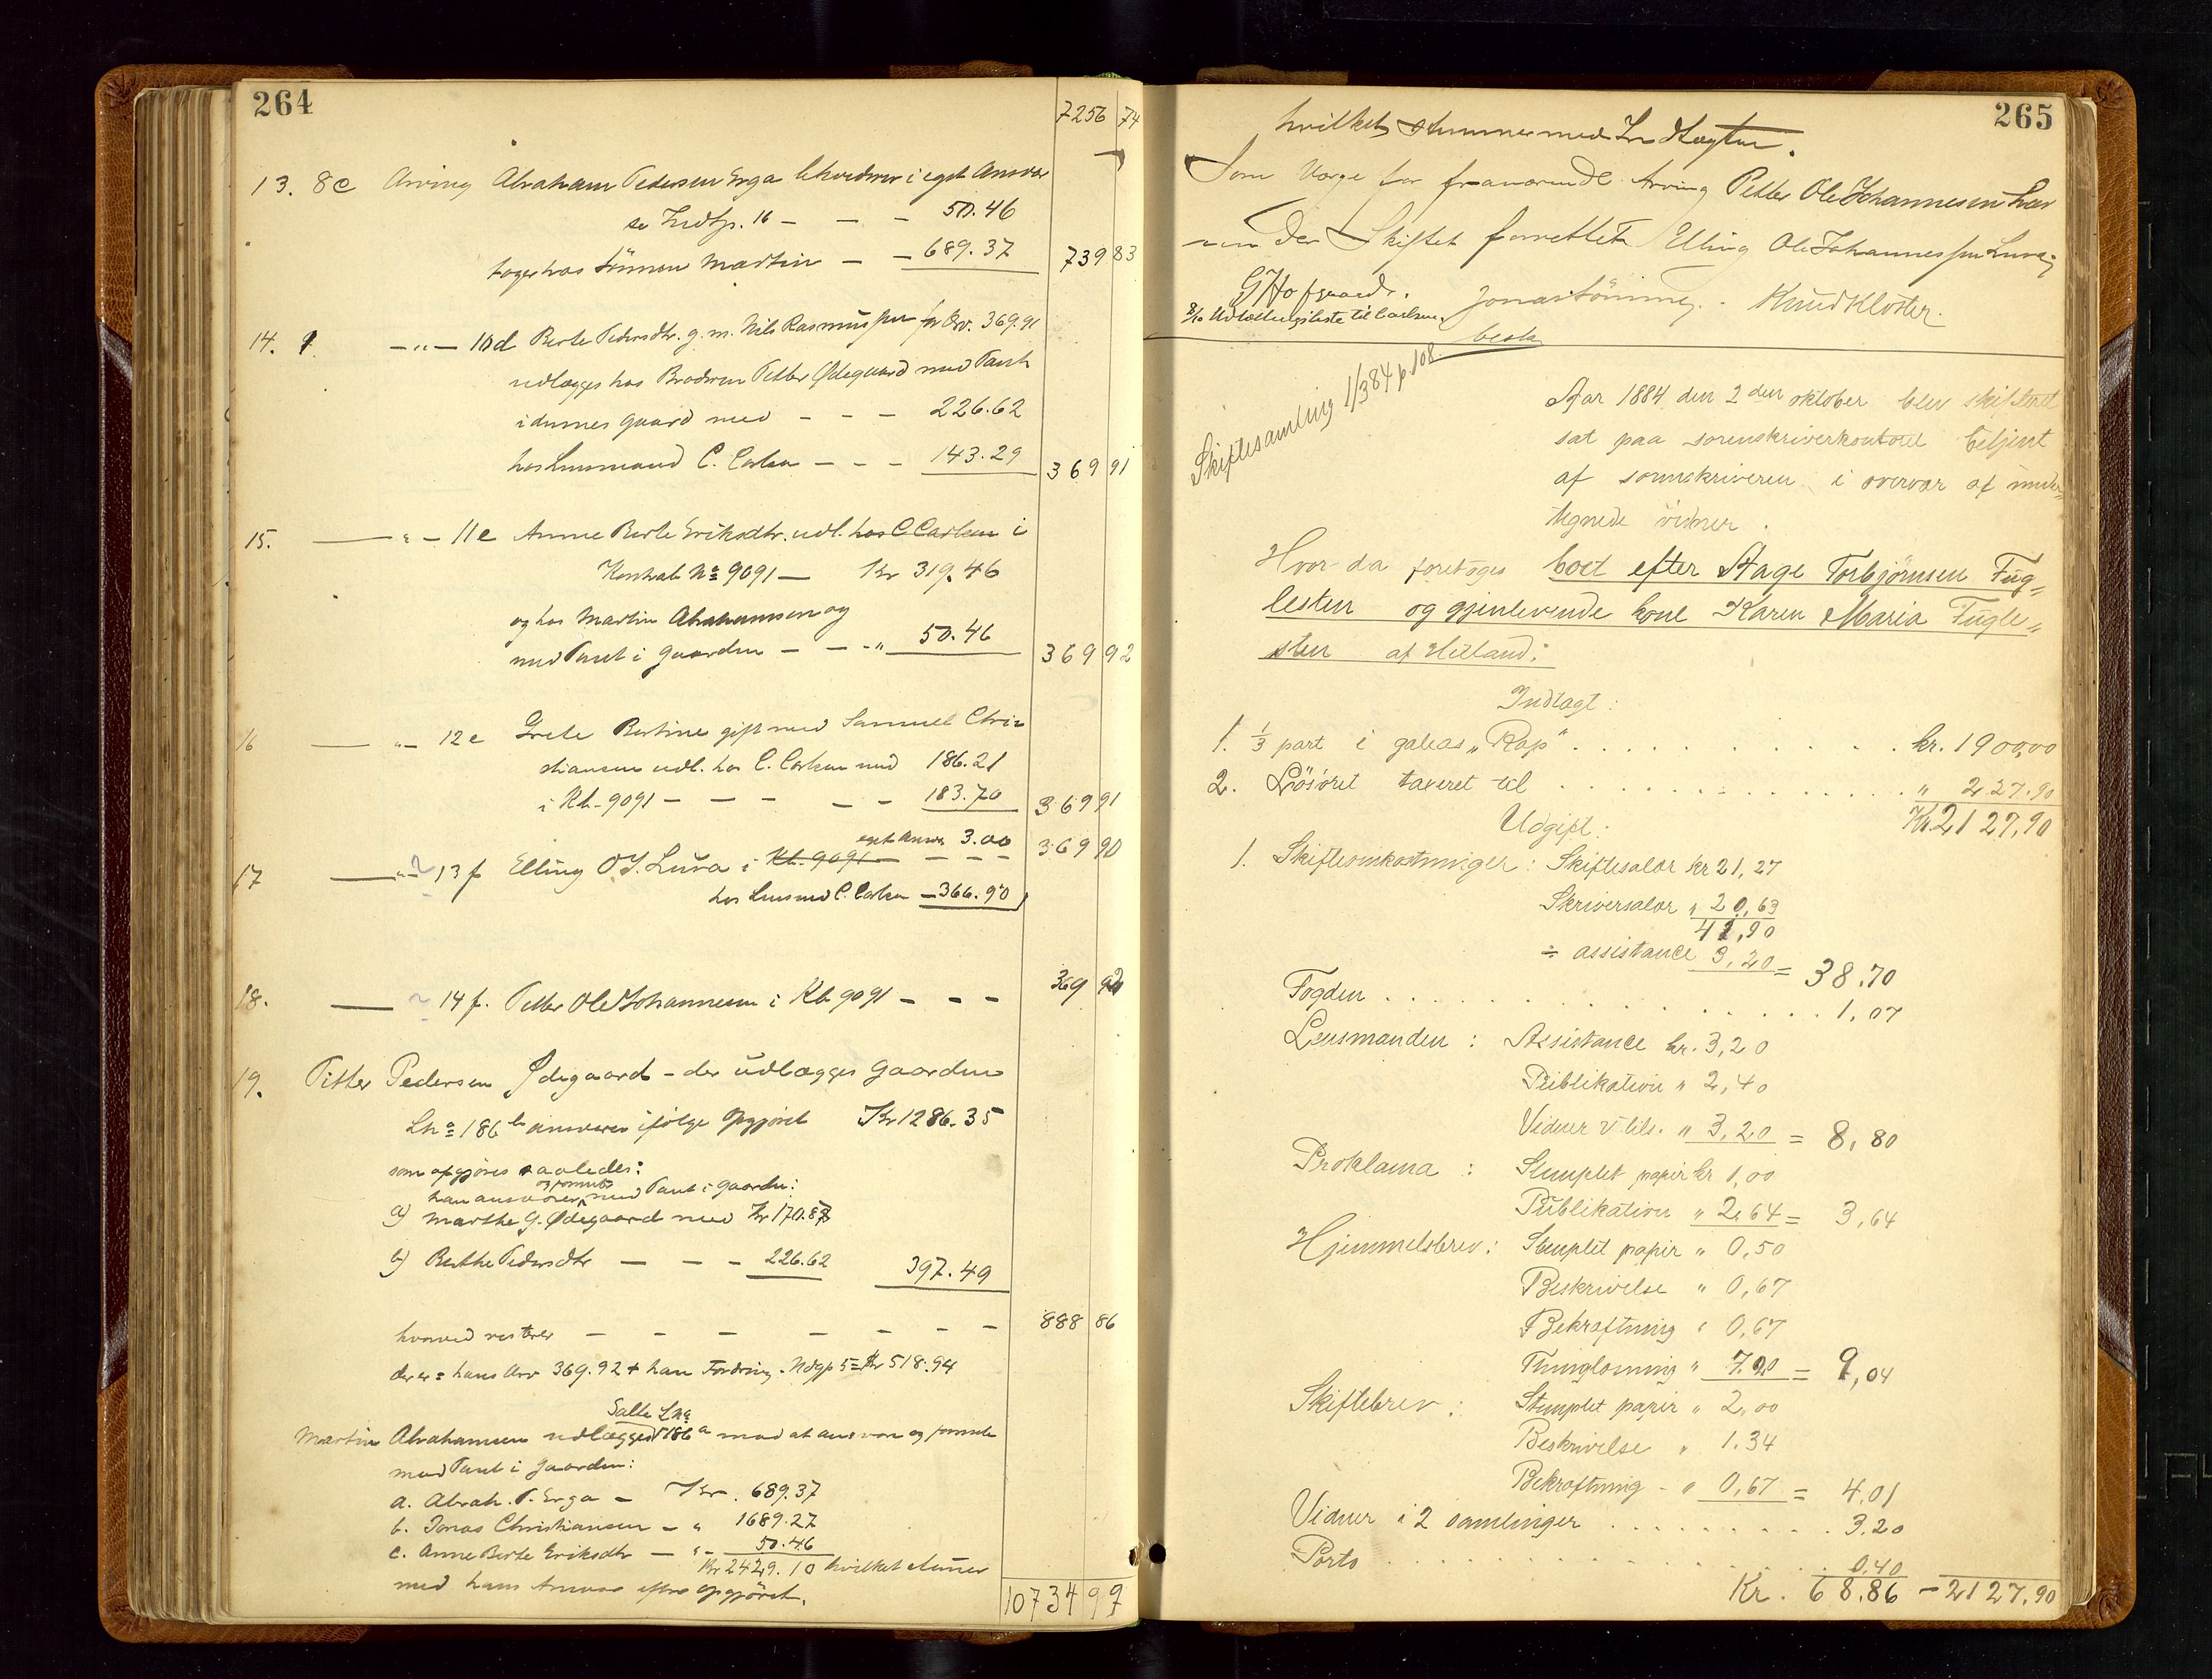 264
7256 74
13. 8c Arving Abraham Pedersen Erga likviderer i eget Ansvar
se Indtgt. 16 – – – 50.46
tages hos Sönnen Martin – – 689.37 739 83
14. 9 – „ – 10d Berte Pedersdtr. g. m. Nils Rasmussen for Arv. 369.91
udlægges hos Broderen Petter Ødegaard med Pant
i dennes Gaard med – – – 226.62
hos Lensmand C. Carlsen – – – 143.29 369 91
15. — „ – 11e Anne Berte Eriksdtr. udl. hos C Carlsen i
Kontrab. No 9091 — Kr 319.46
og hos Martin Abrahamsen og
med Pant i Gaarden – – - „ 50.46 369 92
16 — „ – 12e Grete Bertine gift med Samuel Chri-
stiansen udl. hos C. Carlsen med 186.21
i Kb. 9091 – – – – – 183.70 369 91
eget Ansvar 3.00 369 90
17 — „ – 13f Elling O J. Lura i Kb. 9091 – – – –
hos Lensmd C. Carlsen – 366.90
18. — „ 14f. Petter Ole Johannesen i Kb 9091 – – – 369 92
19. Petter Pedersen Ødegaard – der udlægges Gaarden
Lno 186 b ansvarer ifölge Opgjöret Kr 1286.35
som opgjöres saaledes:
og forrente
han ansvarer med Pant i Gaarden:
a) Marthe G. Ødegaard med Kr 170.87
b) Berthe Pedersdtr — – – 226.62 397.49
hvorved resterer – – – – – – – 888 86
der er = hans Arv 369.92 + han Fordring. Udgp 5 = Kr 518.94
Salte Lno
Martin Abrahamsen udlægges 186 a mod at ansvare og forrente
med Pant i Gaarden:
a. Abrah. P. Erga – Kr. 689.37
b. Jonas Christiansen – „ 1689.27
c. Anne Berte Eriksdtr — „ – 50.46
Kr 2429.10 hvilket stemmer
med hans Ansvar efter Opgjöret.
10734 97
265
hvilket stemmer med Indtægten.
Som Værge for fraværende Arving Petter Ole Johannesen Lura
Skiftet forrettet Elling Ole Johannessen Lura;
G Hofgaard. Jonas Tönning. Knud Kloster.
8/10 Udlodningsliste til Carlsen.
besk
Skiftesamling 1/3 84 p 108
Aar 1884 den 2den oktober blev skifteret
sat paa sorenskriverkontoret betjent
af sorenskriveren i overvær af under-
tegnede vidner.
Hvor da foretoges boet efter Aage Torbjørnsen Fug-
lesten og gjenlevende kone Karen Maria Fugle-
sten af Hetland:
Indtægt:
1. 1/3 part i galeas „Rap“ . . . . . . . . . . . kr. 1900,00
2. Løsøret taxeret til . . . . . . . . . . . „ 227.90
Udgift: Kr. 2127,90
1. Skifteomkostninger: Skiftesalær kr 21,27
Skriversalær „ 20,63
41,90
÷ assistance 3,20 = 38.70
Fogden . . . . . . . . . . . . . . 1,07
Lensmanden: Assistance kr. 3,20
Publikation „ 2,40
Vidner v tils. „ 3,20 = 8,80
Proklama: Stemplet papir kr 1,00
Publikation „ 2,64 = 3,64
Hjemmelsbrev: Stemplet papir „ 0,50
Beskrivelse „ 0,67
Bekræftning „ 0,67
Thinglæsning „ 7.20 = 9,04
Skiftebrev: Stemplet papir „ 2,00
Beskrivelse „ 1.34
Bekræftning – „ 0,67 = 4,01
Vidner i 2 samlinger . . . . . . . . . 3.20
Porto . . . . . . . . . . . . . . . 0,40
Kr. 68.86 – 2127,90